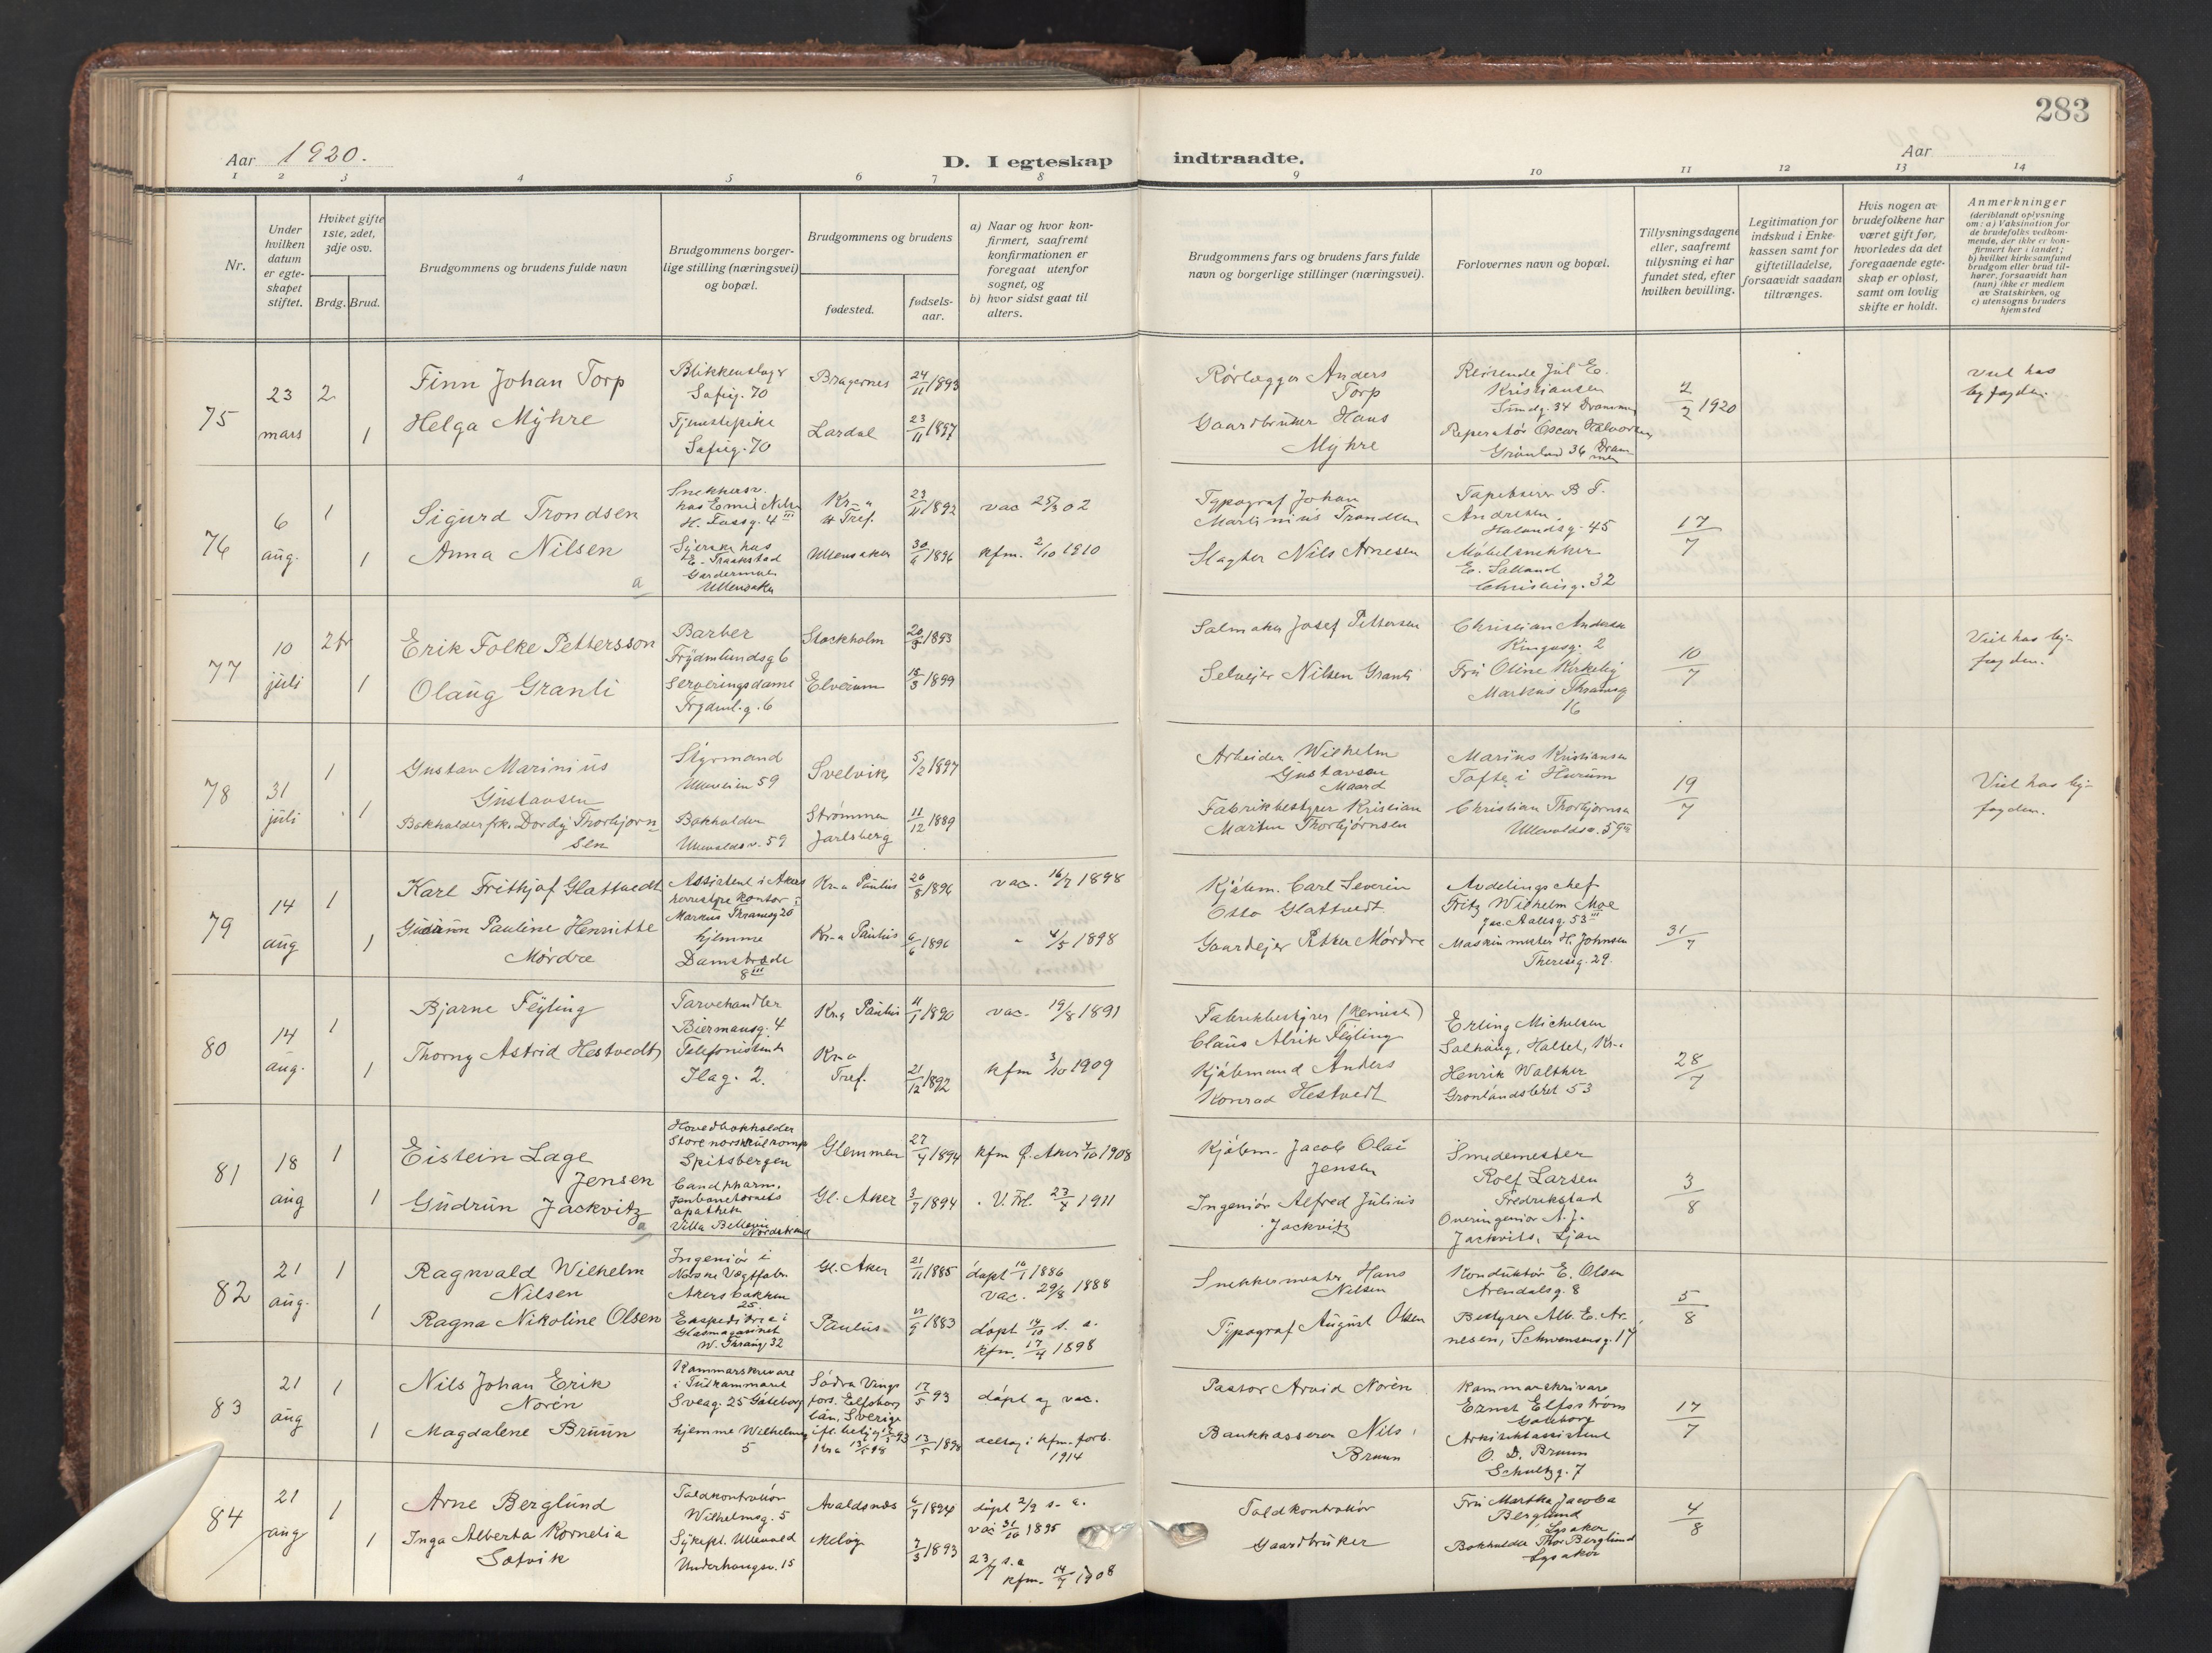 283
Aar 1920.
D. I egteskap indtraadte.
Aar
1 2 3 4 5 6 7 8 9 10 11 12 13 14
Nr.
Under hvilken datum er egteskapet stiftet.
Hviket gifte 1ste, 2det, 3dje osv.
Brdg. Brud.
Brudgommens og brudens fulde navn
Brudgommens borgerlige stilling (næringsvei) og bopæl.
Brudgommens og brudens
fødested.
fødselsaar.
a) Naar og hvor konfirmert, saafremt konfirmationen er foregaat utenfor sognet, og
b) hvor sidst gaat til alters.
Brudgommens fars og brudens fars fulde navn og borgerlige stillinger (næringsvei).
Forlovernes navn og bopæl.
Tillysningsdagene eller, saafremt tillysning ei har fundet sted, efter hvilken bevilling.
Legitimation for indskud i Enkekassen samt for giftetilladelse, forsaavidt saadan tiltrænges.
Hvis nogen av brudefolkene har været gift før, hvorledes da det foregaaende egteskap er opløst, samt om lovlig skifte er holdt.
Anmerkninger
(deriblandt oplysning om: a) Vaksination for de brudefolks vedkommende, der ikke er konfirmert her i landet; b) hvilket kirkesamfund brudgom eller brud tilhører, forsaavidt han (hun) ikke er medlem av Statskirken, og c) utensogns bruders hjemsted
75
23 mars
2
1
Finn Johan Torp
Helga Myhre
Safirg. 70
Tjenestepike
Safirg. 70
Bragernes
24/11 1893
Lardal
23/11 1897
Rørlægger Anders Torp
Gaardbruker Hans Myhre
Reisende Jul E. Kristiansen
Smidg. 34 Drammen
Reperatør Oscar Halvorsen
Grønland 36 Drammen
2/2 1920
Viet hos byfogden
76
6 aug.
1
1
Sigurd Trondsen
Anna Nilsen
a
Snekkersv. hos Emil Nilsen
H. Tassg. 4 III
Syerske hos E. Traakstad
Gardermoen
Ullensaker
Kr-a Tref.
23/11 1892
Ullensaker
1896
vac 25/3 02
kfm. 2/10 1910
Typograf Johan Martinius Trondsen
Slagter Nils Arnesen
Tapetserer B T. Andresen
45
Møbelsnekker
E. Salland
Christiesg. 32
17/7
77
10 juli
2 fr
1
Erik Folke Pettersson
Olaug Granli
Barber
Frydenlundsg 6
Serveringsdame
Frydenl.g. 6
Stockholm
1893
Elverum
15/3 1899
Salmaker Josef Pettersen
Selveier Nilsen Granli
Christian Andersen
Kingosg. 2
Fru Oline Kirkeby
Markus Thranesg 16
10/7
Viet hos byfogden.
78
31 juli
1
1
Gustav Marinius Gustavsen
Bokholderfrk. Dordy Thorbjørnsen
Styrmand
Ullevveien 59
Bokholder
Ullevaldsv. 59
Svelvik
5/2 1897
Strømmen Jarlsberg
11/12 1889
Arbeider Wilhelm Gustavsen Maard
Fabrikbestyrer Kristian Martin Thorbjørnsen
Marius Kristiansen
Tofte i Hurum
Christian Thorbjørnsen
Ullevaldsv. 59
19/7
Viet hos byfogden.
79
14 aug
1
1
Karl Frithjof Glattvedt
Gudrun Pauline Henriette Mørdre
Assistent i Akers herredskontor
Markus Thranesg 20
hjemme
Damstrædet 8 III
Kr-a Paulus
1896
Kr-a Paulus
6/6 1896
vac. 16/7 1898
" 4/5 1898
Kjøbm. Carl Severin Otto Glattvedt.
Gaardejer Petter Mørdre
Avdelingschef Fritz Wilhelm Moe
Jac. Aallsg. 53 III
Maskinmester H. Johnsen
Theresesg. 29.
31/7
80
14 aug.
1
1
Bjarne Feyling
Thorny Astrid Hestvedt
Tarvehandler
Biermansg. 4
Telefonistinde
Ilag. 2.
Kr-a Paulus
1890
Kr-a Tref.
21/12 1892
vac. 19/8 1891
kfm 3/10 1909
Fabrikbestyrer (Kemiker) Claus Feyling
Kjøbmand Anders Konrad Hestvedt
Erling Michelsen
Solhaug, Holtet, Kr-a
Henrik Walther
Grønlandsleret 53
28/7
81
18 aug
1
1
Eistein Lage Jensen
Gudrun Jackvitz
a
Hovedbokholder
Store norske kulkomp
Spitsbergen
Cand pharm.
Jernbanetorvets apothek
Villa Bellevue Nordstrand
Glemmen
27/4 1894
Gl. Aker
3/7 1894
kfm Ø. Aker 4/10 1908
U. Frl. 23/4 1911
Kjøbm. Jacob Olai Jensen
Ingeniør Alfred Julius Jackvitz
Smedemester Rolf Larsen
Fredrikstad
Overingeniør A. J. Jackvitz, Ljan
3/8
82
21 aug.
1
1
Ragnvald Wilhelm Nilsen
Ragna Nikoline Olsen
Ingeniør i Norske Vegtfabr.
Akersbakken 25.
Expeditrice i Glasmagasinet
W. Thranig 32
Gl. Aker
21/11 1885
Paulus
1883
døpt 10/1 1886
vac. 29/8 1888
døpt 14/10 s. a.
kfm. 17/4 1898
Snekkermester Hans Nilsen
Typograf August Olsen
Konduktør E. Olsen
Arendalsg. 8
Bestyrer Alb. E. Arnesen, Schwensensg. 17
5/8
83
21 aug
1
1
Nils Johan Erik Norén
Magdalene Bruun
Kammarskrivare i Tulkammaret
Sveag. 25 Göteborg
hjemme Wilhelmsg 5
Södra Vings fors. Elfsborgs län, Sverige
17/5 93
13/5 1898
døpt og vac.
deltog i kfm. forb. 1914
Pastor Arvid Norén
Bankkasserer Nils Bruun
Kammarskrivare Ernst Elfström
Göteborg
Arkitektassistent O. D. Bruun
Schultzg. 7
17/7
84
21 aug
1
1
Arne Berglund
Inga Alberta Kornelia Sætvik
Toldkontrollør
Wilhelmsg. 5
Sykepl. Ullevold
Underhaugsv. 15
Avaldsnes
6/7 1894
Meløy
7/3 1893
døpt 2/9 s. a.
vac 31/10 1895
23/7 s. a
kfm. 14/7 1908
Toldkontrollør
Gaardbruker
Fru Martha Jacoba Berglund
Lysaker
Bokholder Thor Berglund
Lysaker
4/8